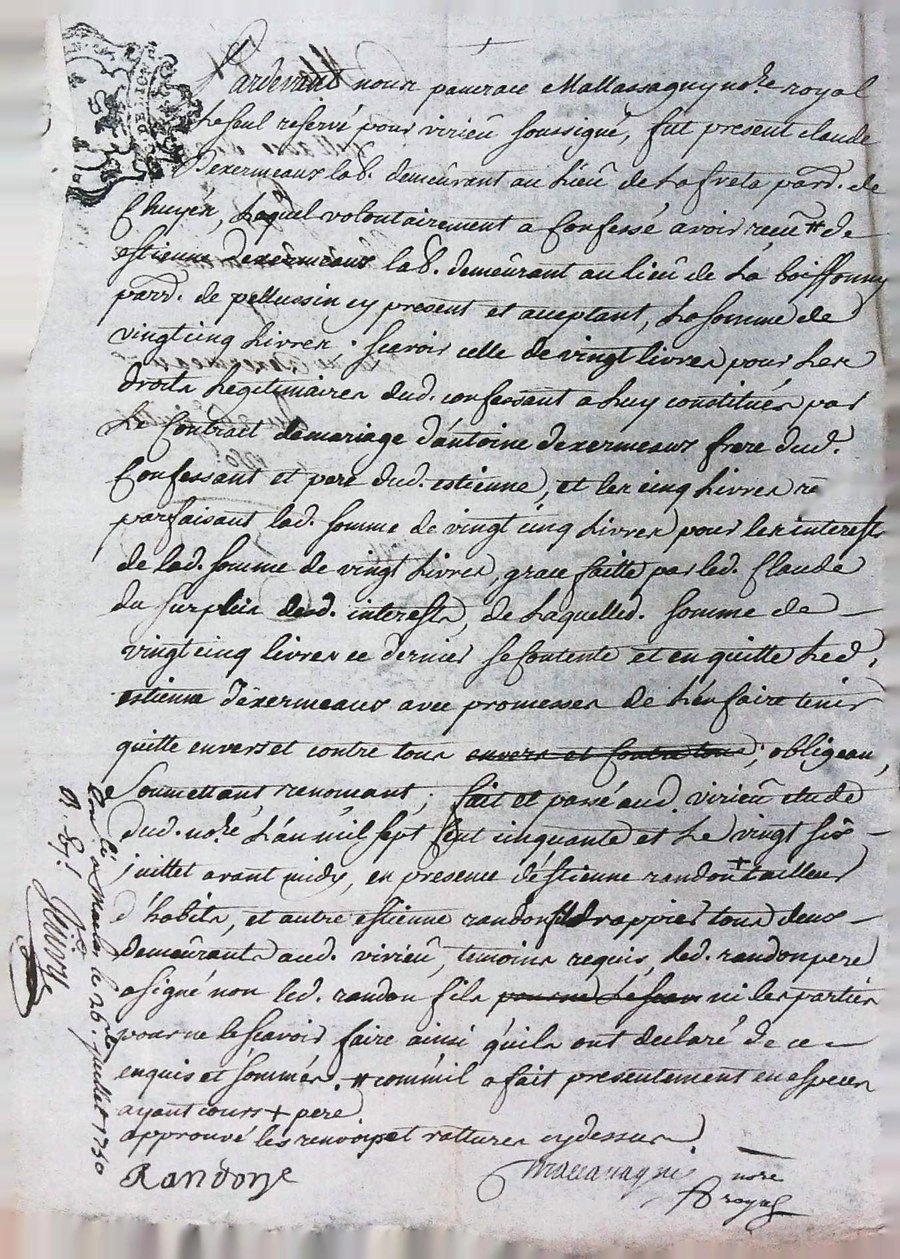 DE LION
Pardevant nous pancrace Mallassagny no.re royal
Le seul reservé pour virieû soussigné, fut present claude
Dexermeaux lab. demeûrant au Lieû de La freta parr. de
Chuyer, Lequel volontairement a Confessé avoir receû # de
estienne Dexermeaux lab. demeûrant au lieû de La boissonny
parr. de pellussin cy present et aceptant, La somme de
vingt cinq Livres; scavoir celle de vingt livres pour Les
droits Legitimaires dud. confessant a Luy constitués par
Le Contrait de mariage d'antoine dexermeaux frere dud.
Confessant et pere dud. estienne, et les cinq Livres re
parfaisant lad. somme de vingt cinq Livres pour les interests
de lad. somme de vingt Livres, grace faitte par led. Claude
du surplus desd. interests, de Laquelled. somme de
vingt cinq livres ce dernier se Contente et en quitte Led.
estienne dexermeaux avec promesses de L'en faire tenir
quitte envers et contre tous envers et Contre tous; obligeant,
Soumettant renoncant; fait et passé aud. virieû etude
dud. no.re L'an mil sept cent cinquante et Le vingt six
juillet avant midy, en presence d'estienne randon + tailleur
d'habits, et autre estienne randon fils drappier tous deux
demeûrants aud. virieû, temoins requis, Led. randon pere
a signé non led. randon fils pour ne Le scavoir ni les parties
pour ne le scavoir faire ainsi qu'ils ont declaré de ce
enquis et sommés. # comm'il a fait presentement en especes
ayant cours + pere
approuvé les renvois et rattures cy dessus
Randon
no.re
royal
Con.lé a le 26. juillet 1750